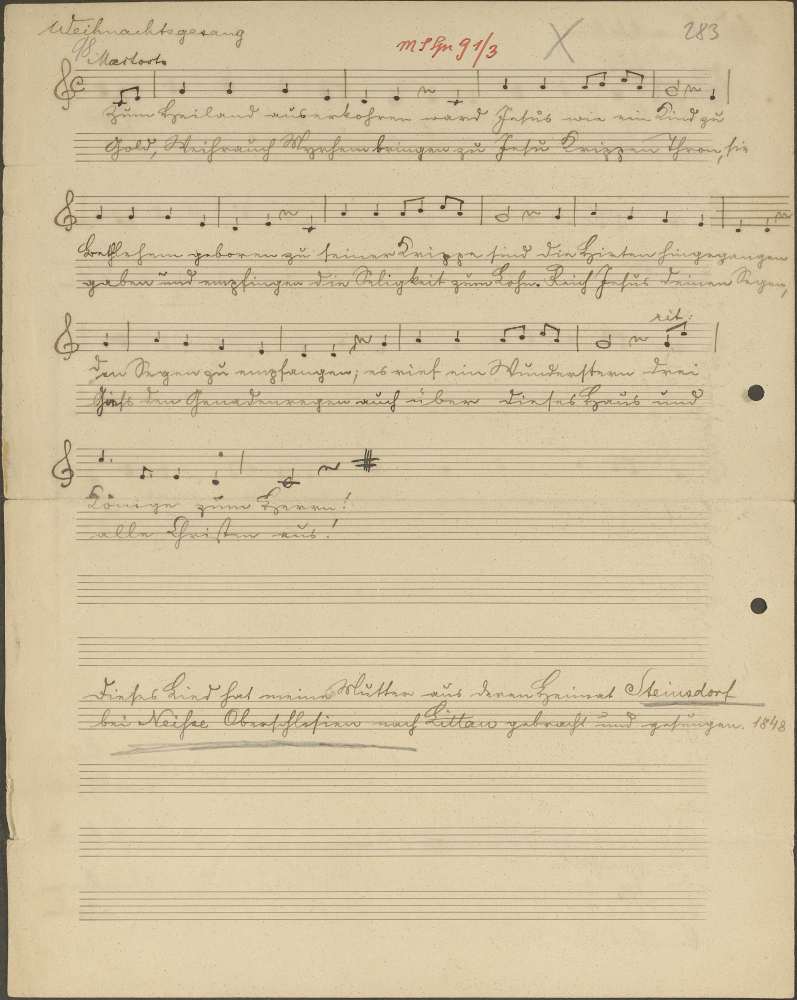 Weihnachtsgesang
283
Zum Heiland auserkohren ward Jesus wie ein Kind zu
Gold, Weihrauch Myrhem bringen zu Jesu Krippen Thron, sie
Bethlehem geboren zu seiner Krippe sind die Hirten hingegangen
gaben und empfingen die Seligkeit zum Lohn. Reich Jesus deinen Segen,
den Segen zu empfangen; es rief ein Wunderstern drei
rit:
Gieß den Genadenregen auch über dieses Haus und
Könige zum Herrn!
alle Christen aus!
Dieses Lied hat meine Mutter aus deren Heimat Steinsdorf
bei Neisse Oberschlesien nach Littau gebracht und gesungen. 1848